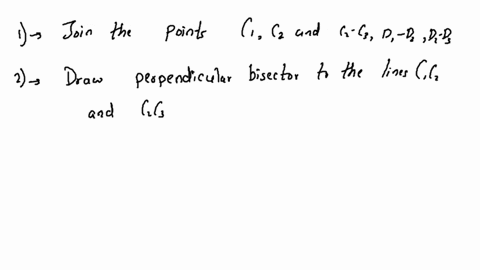 1)→ Join the points C1, C2 and C2-C3, D1-D2, D2-D3
2)→ Draw perpendicular bisector to the lines C1C2
and C2C3